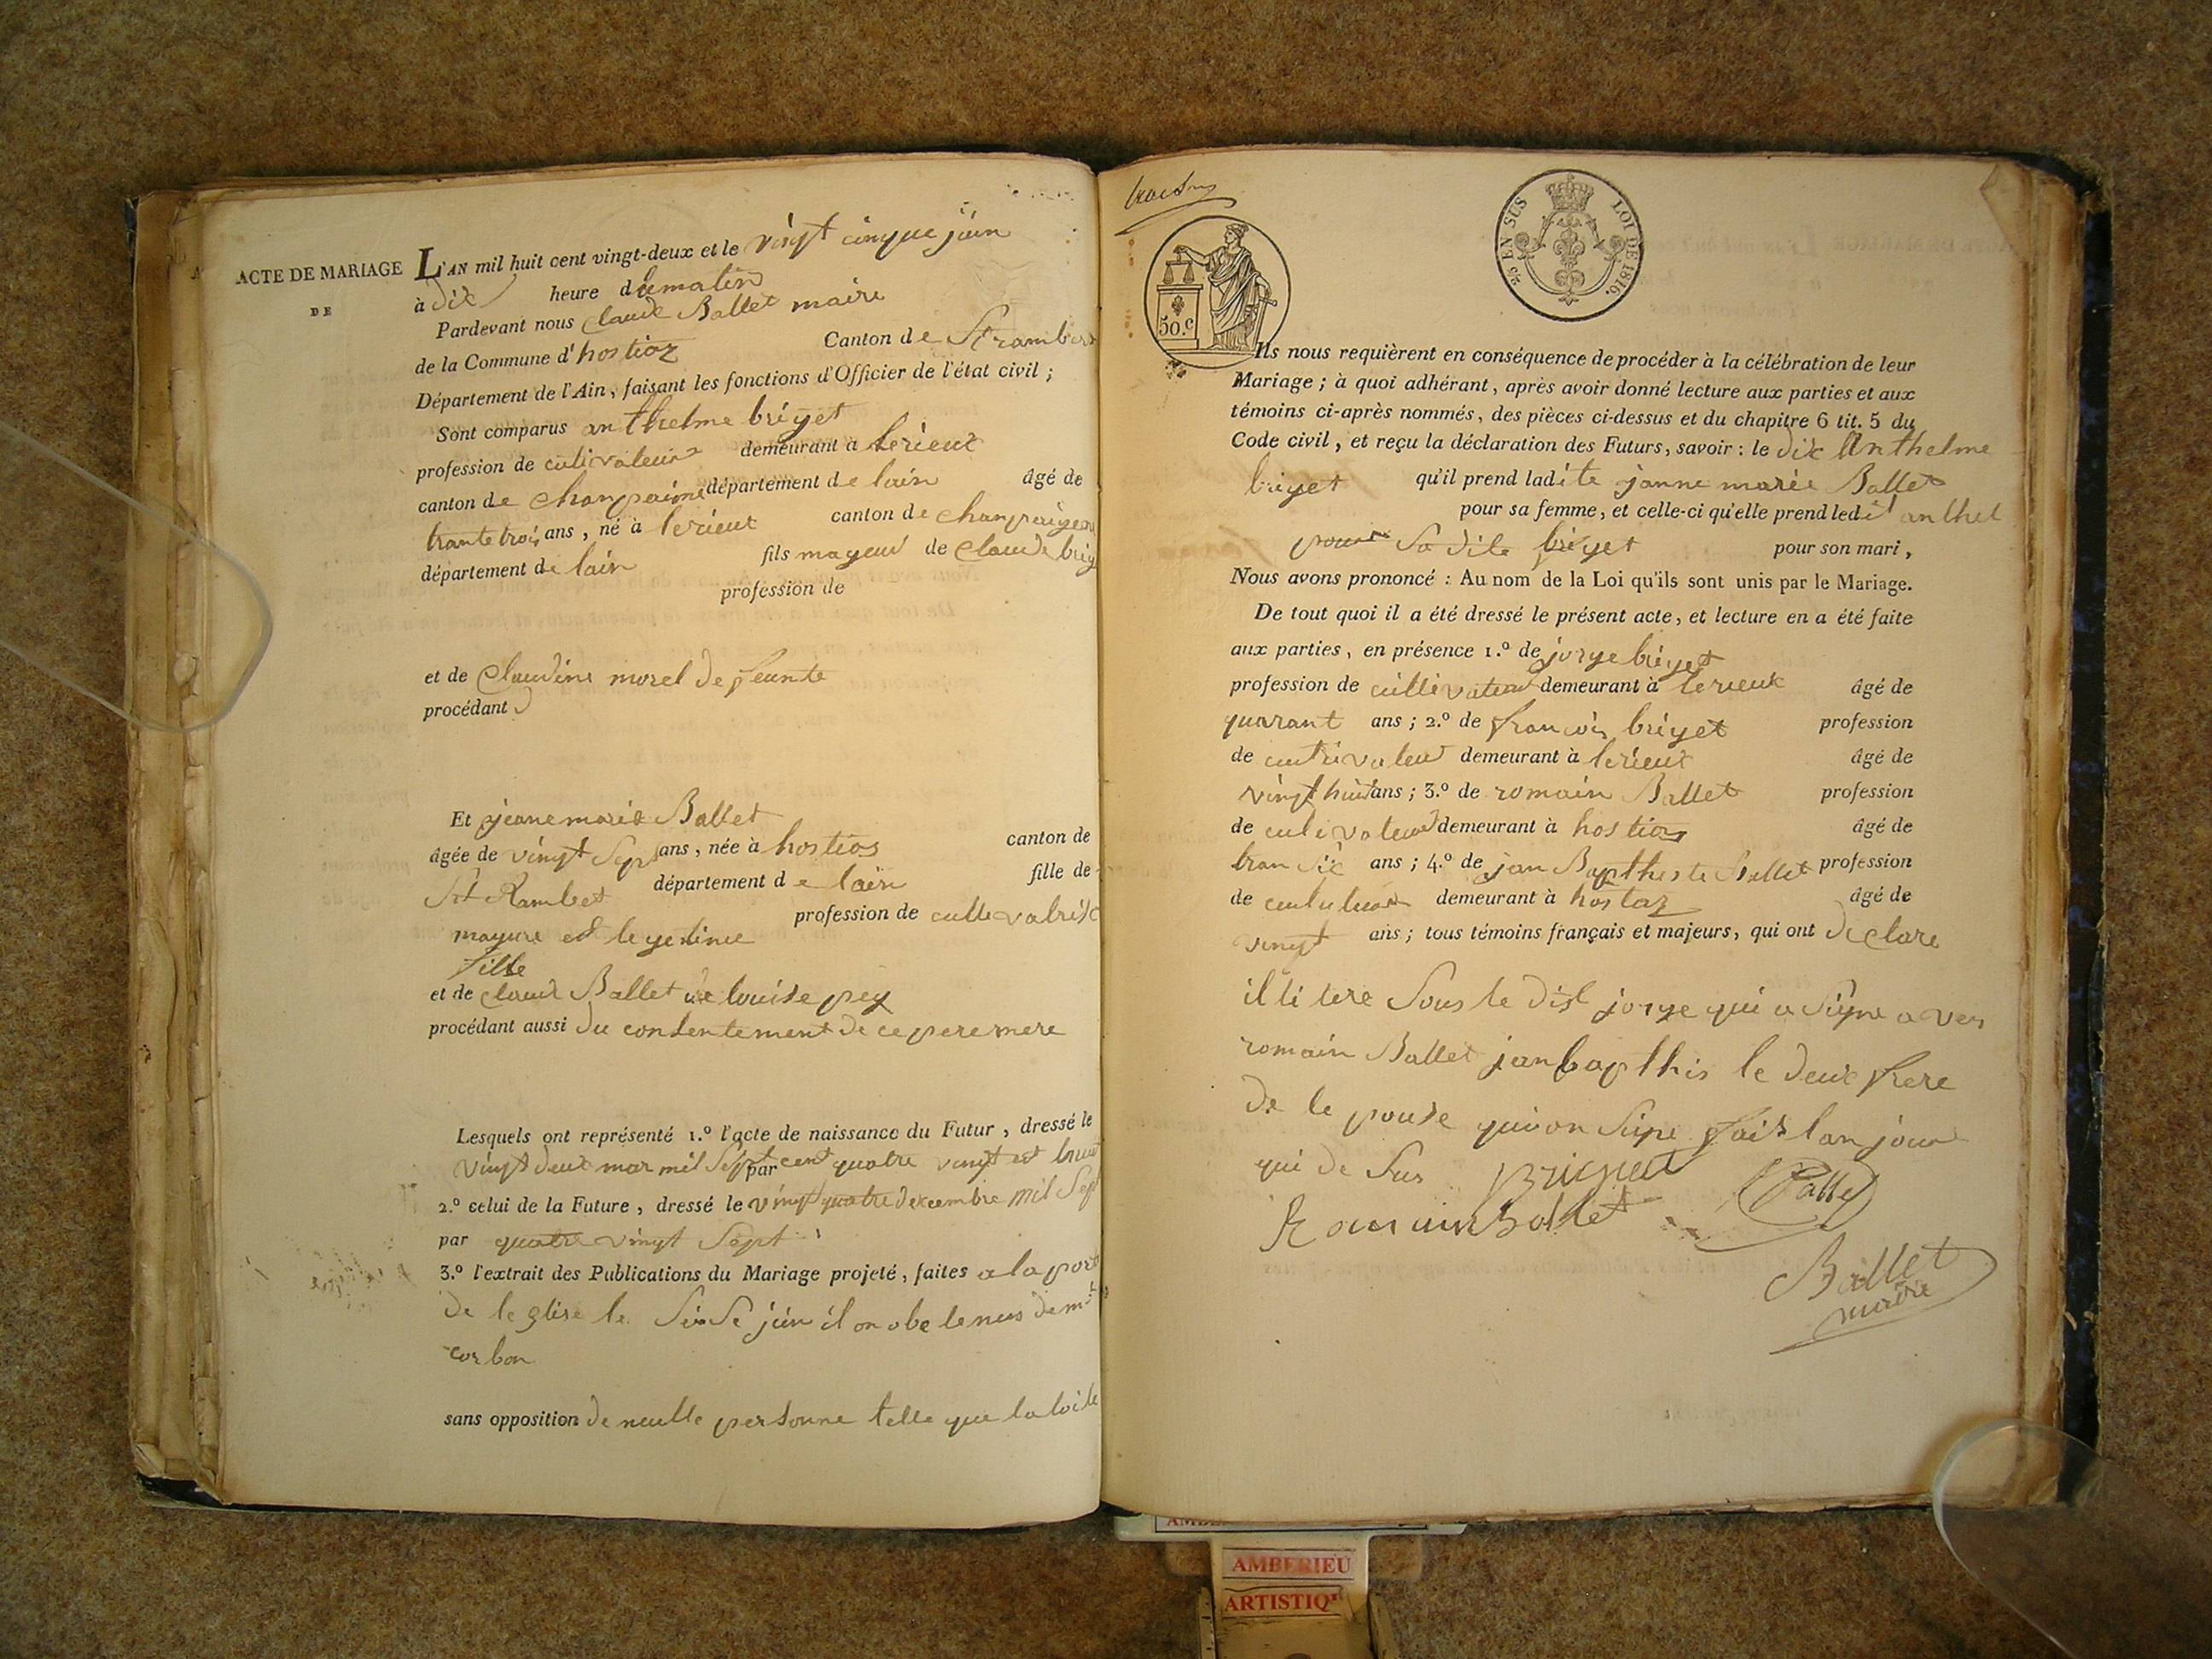 ACTE DE MARIAGE
DE
L'AN mil huit cent vingt-deux et le vingt cinque juin
à dix heure du matin
Pardevant nous claude Ballet maire
de la Commune d'hostiaz Canton de St rambert
Département de l'Ain, faisant les fonctions d'Officier de l'état civil ;
Sont comparus anthelme briget
profession de culivateur demeurant à lerieux
canton de département de lain âgé de
trante trois ans, né à lerieux canton de
département de lain fils mayeur de Claude
profession de
et de Claudine morel
procédant
Et jeanemarie Ballet
âgée de vingt Sept ans, née à hostias canton de
St Rambet département de lain fille de
profession de
mayure et legetime
fille
et de claude Ballet de louise pey
procédant aussi du consentement de ce pere mere
Lesquels ont représenté 1.º l'acte de naissance du Futur, dressé le
vingt deux mar mil Sept par cent quatre vingt
2.º celui de la Future, dressé le vingt quatre decembre mil Sept
par quatre vingt Sept
3.º l'extrait des Publications du Mariage projeté, faites a la porte
de leglise le Seise juin il on
sans opposition de neulle personne telle que la loi le
50.c
25 EN SUS LOI DE 1816.
Ils nous requièrent en conséquence de procéder à la célébration de leur
Mariage ; à quoi adhérant, après avoir donné lecture aux parties et aux
témoins ci-après nommés, des pièces ci-dessus et du chapitre 6 tit. 5 du
Code civil, et reçu la déclaration des Futurs, savoir : le dit Anthelme
briget qu'il prend ladite janne marie Ballet
pour sa femme, et celle-ci qu'elle prend ledit anthel
briget pour son mari,
Nous avons prononcé : Au nom de la Loi qu'ils sont unis par le Mariage.
De tout quoi il a été dressé le présent acte, et lecture en a été faite
aux parties, en présence 1.º de jorge briget
profession de cultivateur demeurant à lerieux âgé de
quarant ans ; 2.º de francois briget profession
de demeurant à lerieux âgé de
vingt huit ans ; 3.º de romain Ballet profession
de culivateur demeurant à hostias âgé de
tran Sis ans ; 4.º de jan Bapthiste Ballet profession
de demeurant à hostaz âgé de
vingt ans ; tous témoins français et majeurs, qui ont declare
illitere Sous le dist jorge qui a Signe aves
romain Ballet janbapthis le deux frere
de le pouse qui on Sine fait lan jour
qui de Sus Briguet Ballet
Romain Ballet
Ballet
maire
AMBERIEU
ARTISTIQ